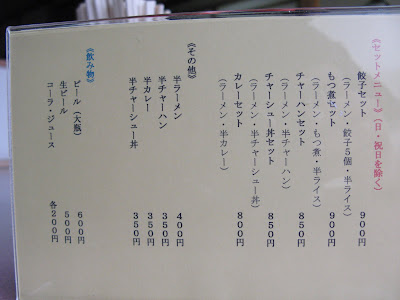 《セットメニュー》(日・祝日を除く)
餃子セット 900円
(ラーメン・餃子5個・半ライス)
もつ煮セット 900円
(ラーメン・もつ煮・半ライス)
チャーハンセット 850円
(ラーメン・半チャーハン)
チャーシュー丼セット 850円
(ラーメン・半チャーシュー丼)
カレーセット 800円
(ラーメン・半カレー)
《その他》
半ラーメン 400円
半チャーハン 350円
半カレー 350円
半チャーシュー丼 350円
《飲み物》
ビール(大瓶) 600円
生ビール 500円
コーラ・ジュース 各200円